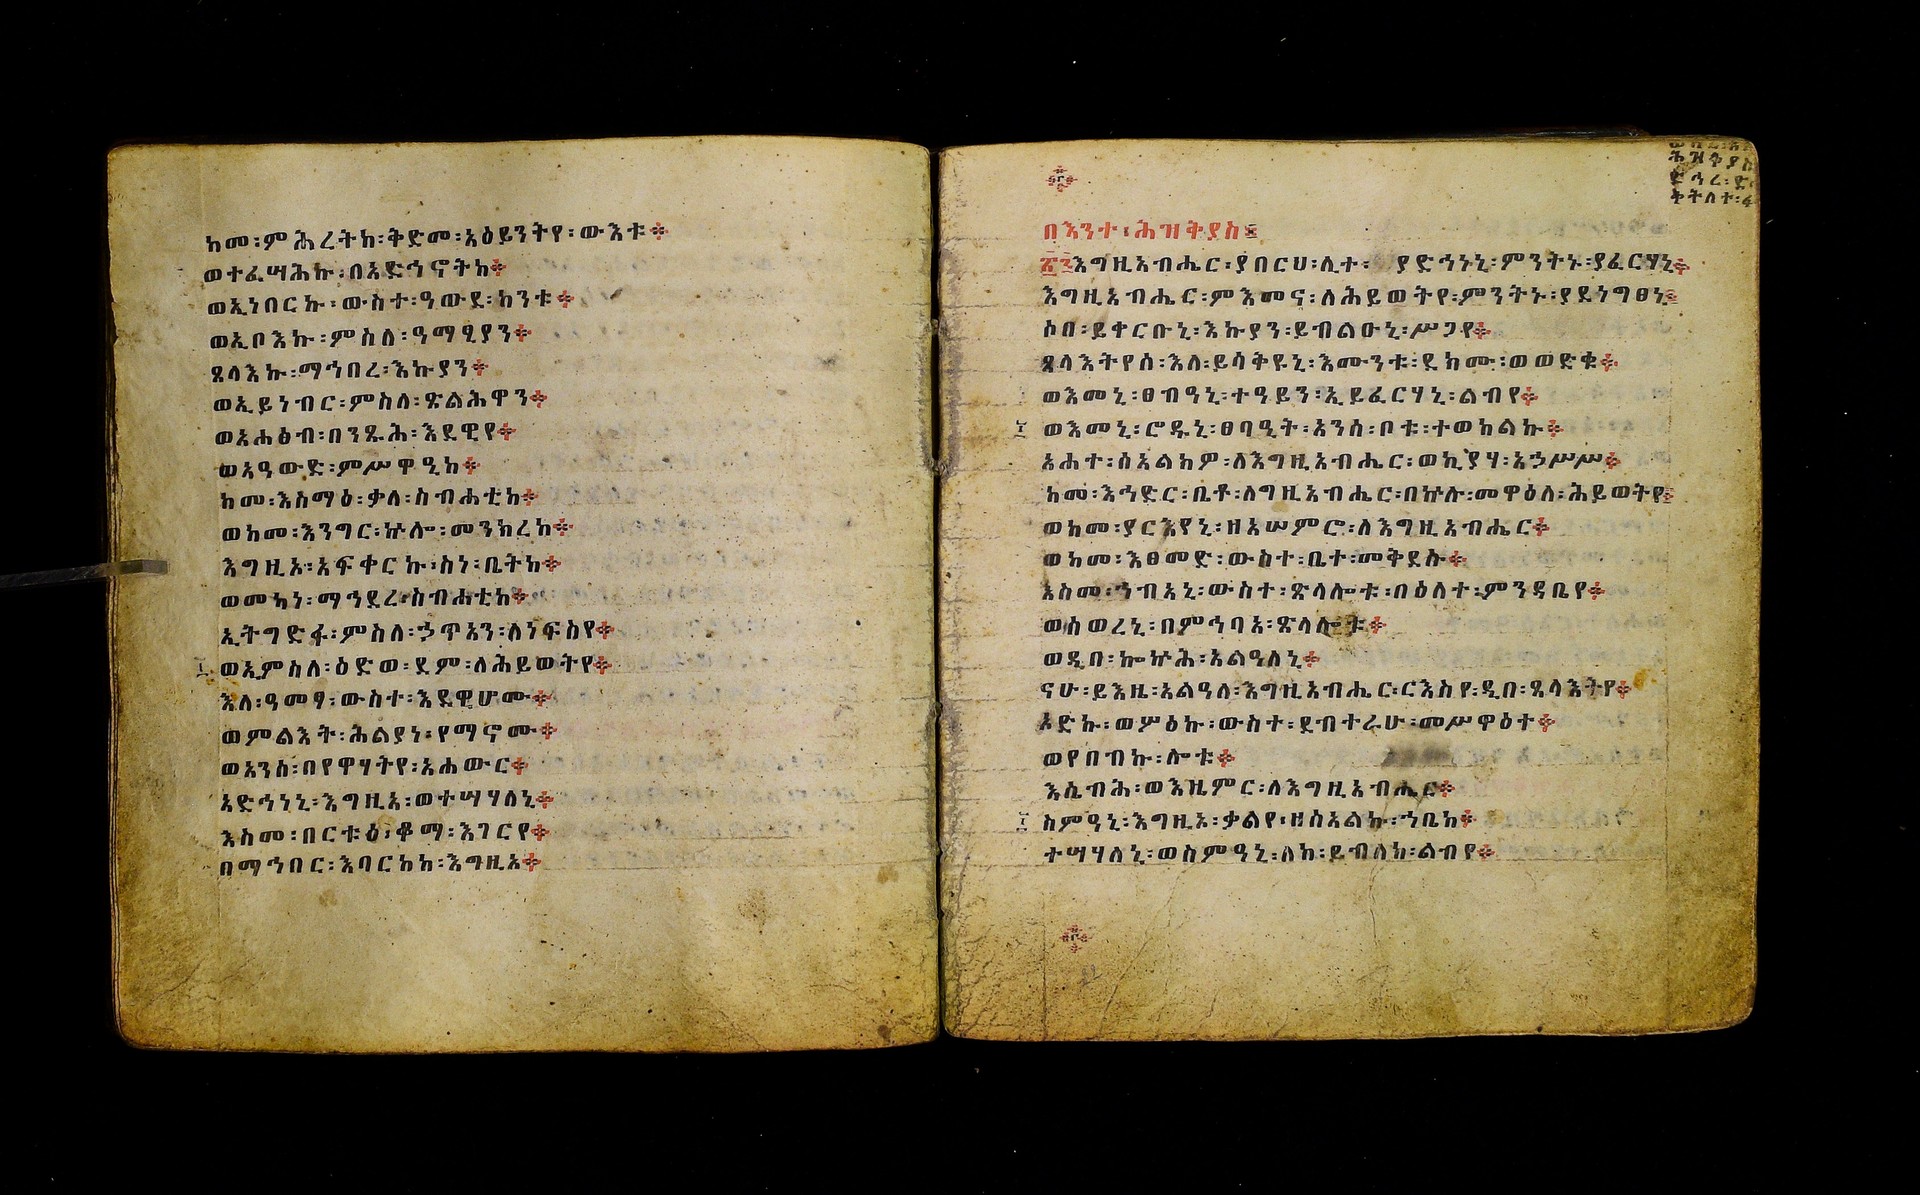 ከመ፡ምሕረትከ፡ቅድመ፡አዕይንትየ፡ውእቱ፨
ወተፈሣሕኩ፡በአድኅኖትከ፨
ወኢነበርኩ፡ውስተ፡ዓውደ፡ከንቱ፨
ወኢቦእኩ፡ምስለ፡ዓማፂያን፨
ጸላእኩ፡ማኅበረ፡እኩያን፨
ወኢይነብር፡ምስለ፡ጽልሕዋን፨
ወአሐፅብ፡በንጹሕ፡እደዊየ፨
ወአዓውድ፡ምሥዋዒከ፨
ከመ፡እስማዕ፡ቃለ፡ስብሐቲከ፨
ወከመ፡እንግር፡ኵሎ፡መንክረከ፨
እግዚኦ፡አፍቀርኩ፡ስነ፡ቤትከ፨
ወመካነ፡ማኅደረ፡ስብሐቲከ፨
ኢትግድፋ፡ምስለ፡ኃጥአን፡ለነፍስየ፨
ወኢምስለ፡ዕድወ፡ደም፡ለሕይወትየ፨
እለ፡ዓመፃ፡ውስተ፡እደዊሆሙ፨
ወምልእት፡ሕልያነ፡የማኖሙ፨
ወአንሰ፡በየዋሃትየ፡አሐውር፨
አድኅነኒ፡እግዚኦ፡ወተሣሃለኒ፨
እስመ፡በርቱዕ፡ቆማ፡እገርየ፨
በማኅበር፡እባርከከ፡እግዚኦ፨
በእንተ፡ሕዝቅያስ፤
፳፮እግዚአብሔር፡ያበርሀ፡ሊተ፡ ያድኅኑኒ፡ምንትኑ፡ያፈርሃኒ፨
እግዚአብሔር፡ምእመና፡ለሕይወትየ፡ምንትኑ፡ያደነግፀኒ፨
ሶበ፡ይቀርቡኒ፡እኩያን፡ይብልዑኒ፡ሥጋየ፨
ጸላእትየሰ፡እለ፡ይሳቅዩኒ፡እሙንቱ፡ደክሙ፡ወወድቁ፨
ወእመኒ፡ፀብዓኒ፡ተዓይን፡ኢይፈርሃኒ፡ልብየ፨
ወእመኒ፡ሮዱኒ፡ፀባዒት፡አንሰ፡ቦቱ፡ተወከልኩ፨
አሐተ፡ሰአልክዎ፡ለእግዚአብሔር፡ወኪያሃ፡አኃሥሥ፨
ከመ፡እኅድር፡ቤቶ፡ለግዚአብሔር፡በኵሉ፡መዋዕለ፡ሕይወትየ፨
ወከመ፡ያርእየኒ፡ዘአሠምሮ፡ለእግዚአብሔር፨
ወከመ፡እፀመድ፡ውስተ፡ቤተ፡መቅደሱ፨
እስመ፡ኀብአኒ፡ውስተ፡ጽላሎቱ፡በዕለተ፡ምንዳቤየ፨
ወሰወረኒ፡በምኅባአ፡ጽላሎቱ፨
ወዲበ፡ኰኵሕ፡አልዓለኒ፨
ናሁ፡ይእዜ፡አልዓለ፡እግዚአብሔር፡ርእስየ፡ዲበ፡ጸላእትየ፨
ዖድኩ፡ወሦዕኩ፡ውስተ፡ደብተራሁ፡መሥዋዕተ፨
ወየበብኩ፡ሎቱ፨
እሴብሕ፡ወእዜምር፡ለእግዚአብሔር፨
ስምዓኒ፡እግዚኦ፡ቃልየ፡ዘሰአልኩ፡ኀቤከ፨
ተሣሃለኒ፡ወስምዓኒ፡ለከ፡ይብለከ፡ልብየ፨